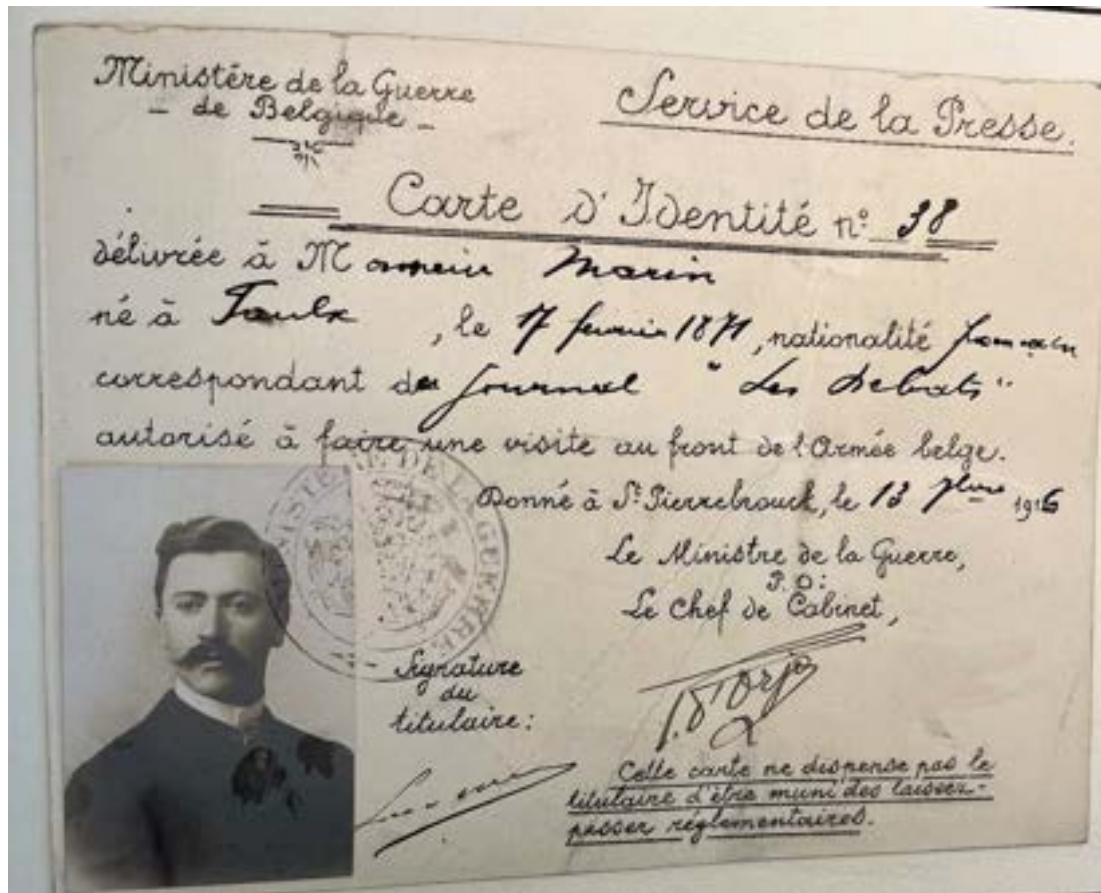 Ministère de la Guerre
- de Belgique -
Service de la Presse.
Carte d'Identité n° 38
délivrée à Monsieur Marin
né à Faulx, le 17 fevrier 1871, nationalité française
correspondant du journal "Les Debats"
autorisé à faire une visite au front de l'Armée belge.
Donné à St Pierrebrouck, le 13 1916
MINISTÈRE DE LA GUERRE
Le Ministre de la Guerre,
P.O:
Le Chef de Cabinet,
Signature
du
titulaire:
Cette carte ne dispense pas le
titulaire d'être muni des laissez-
passer réglementaires.